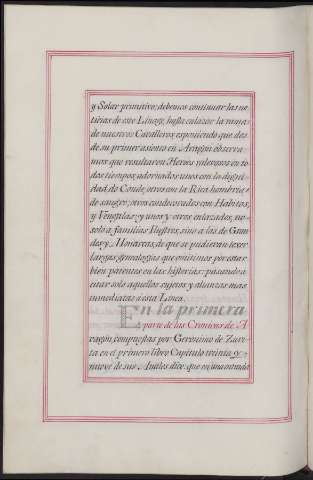 y Solar primitivo; debemos continuar las no
ticias de este Linage, hasta enlazar la rama
de nuestros Cavalleros, exponiendo que des
de su primer asiento en Aragon observa
mos que resultaron Heroes valerosos en to
dos tiempos, adornados unos con la digni
dad de Conde, otros con la Rica hombria
de sangre; otros condecorados con Habitos,
y Vengalas; y unos y otros enlazados, no
solo a familias Ilustres, sino a las de Gran
des y Monarcas, de que se pudieran texer
largas genealogias que omitimos por estar
bien patentes en las historias: pasando a
citar solo aquellos sujetos y alianzas mas
inmediatas a esta Linea.
En la primera
parte de las Cronicas de A
ragon, compuestas por Geronimo de Zuri
ta en el primero libro Capitulo treinta y
nueve de sus Anales dice: que en una